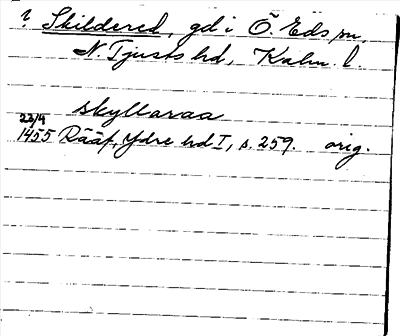 ? Skildered, gd i Ö. Eds sn,
N Tjusts hd, Kalm. l.
skyllaraa
23/4
1455 Rääf, Ydre hd I, s. 259. orig.